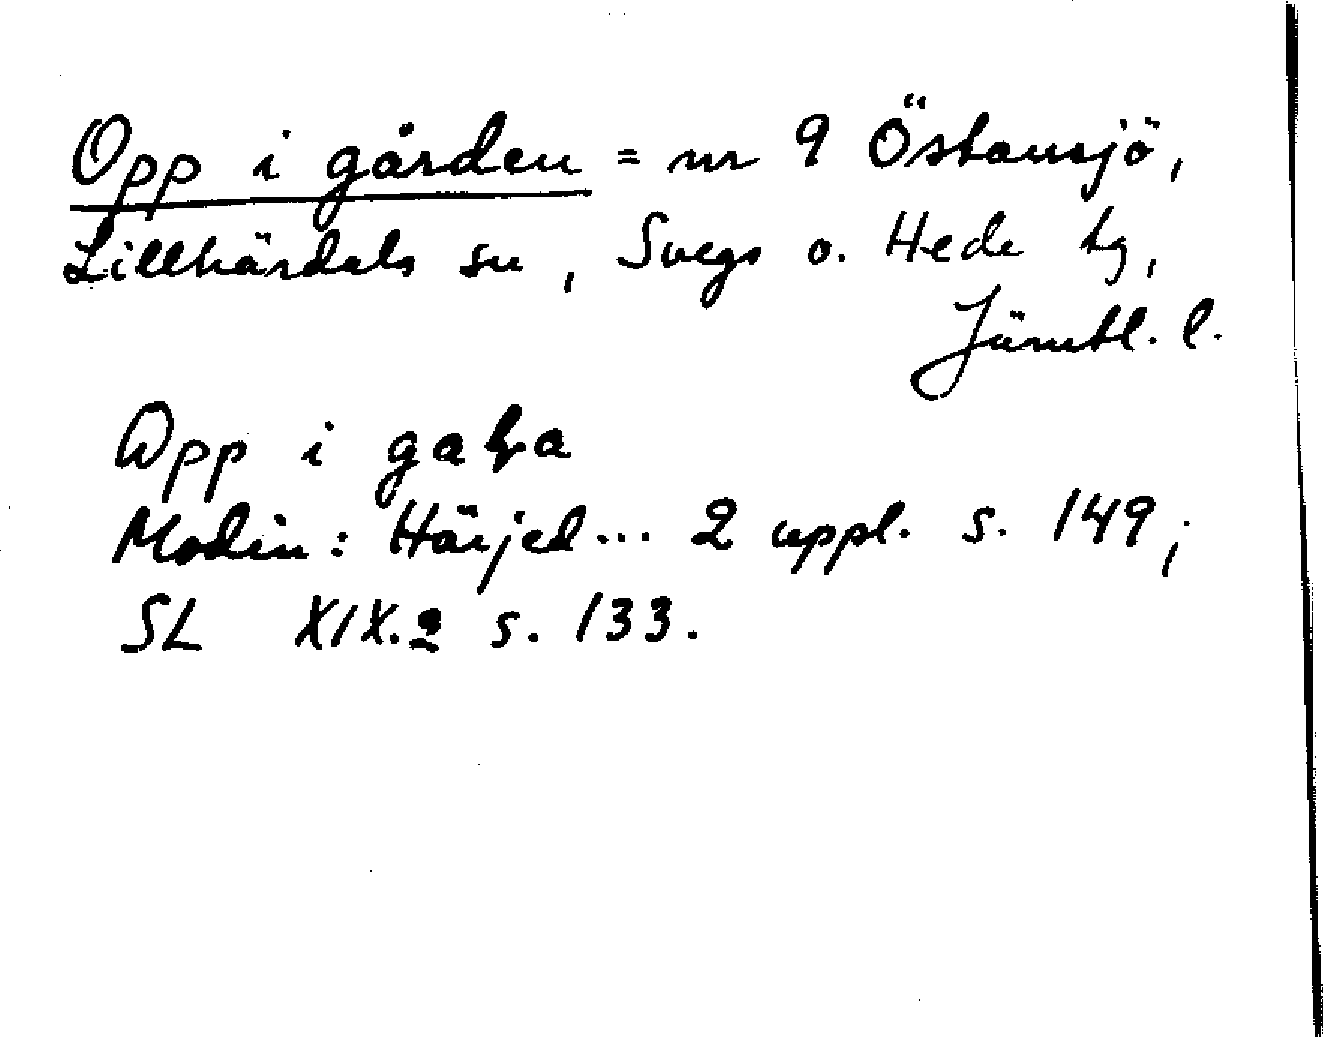 Opp i gården = nr 9 Östansjö,
Lillhärdals sn, Svegs o. Hede tg,
Jämtl. l.
Opp i
Modin: Härjed... 2 uppl. s. 149;
SL XIX.2 s. 133.